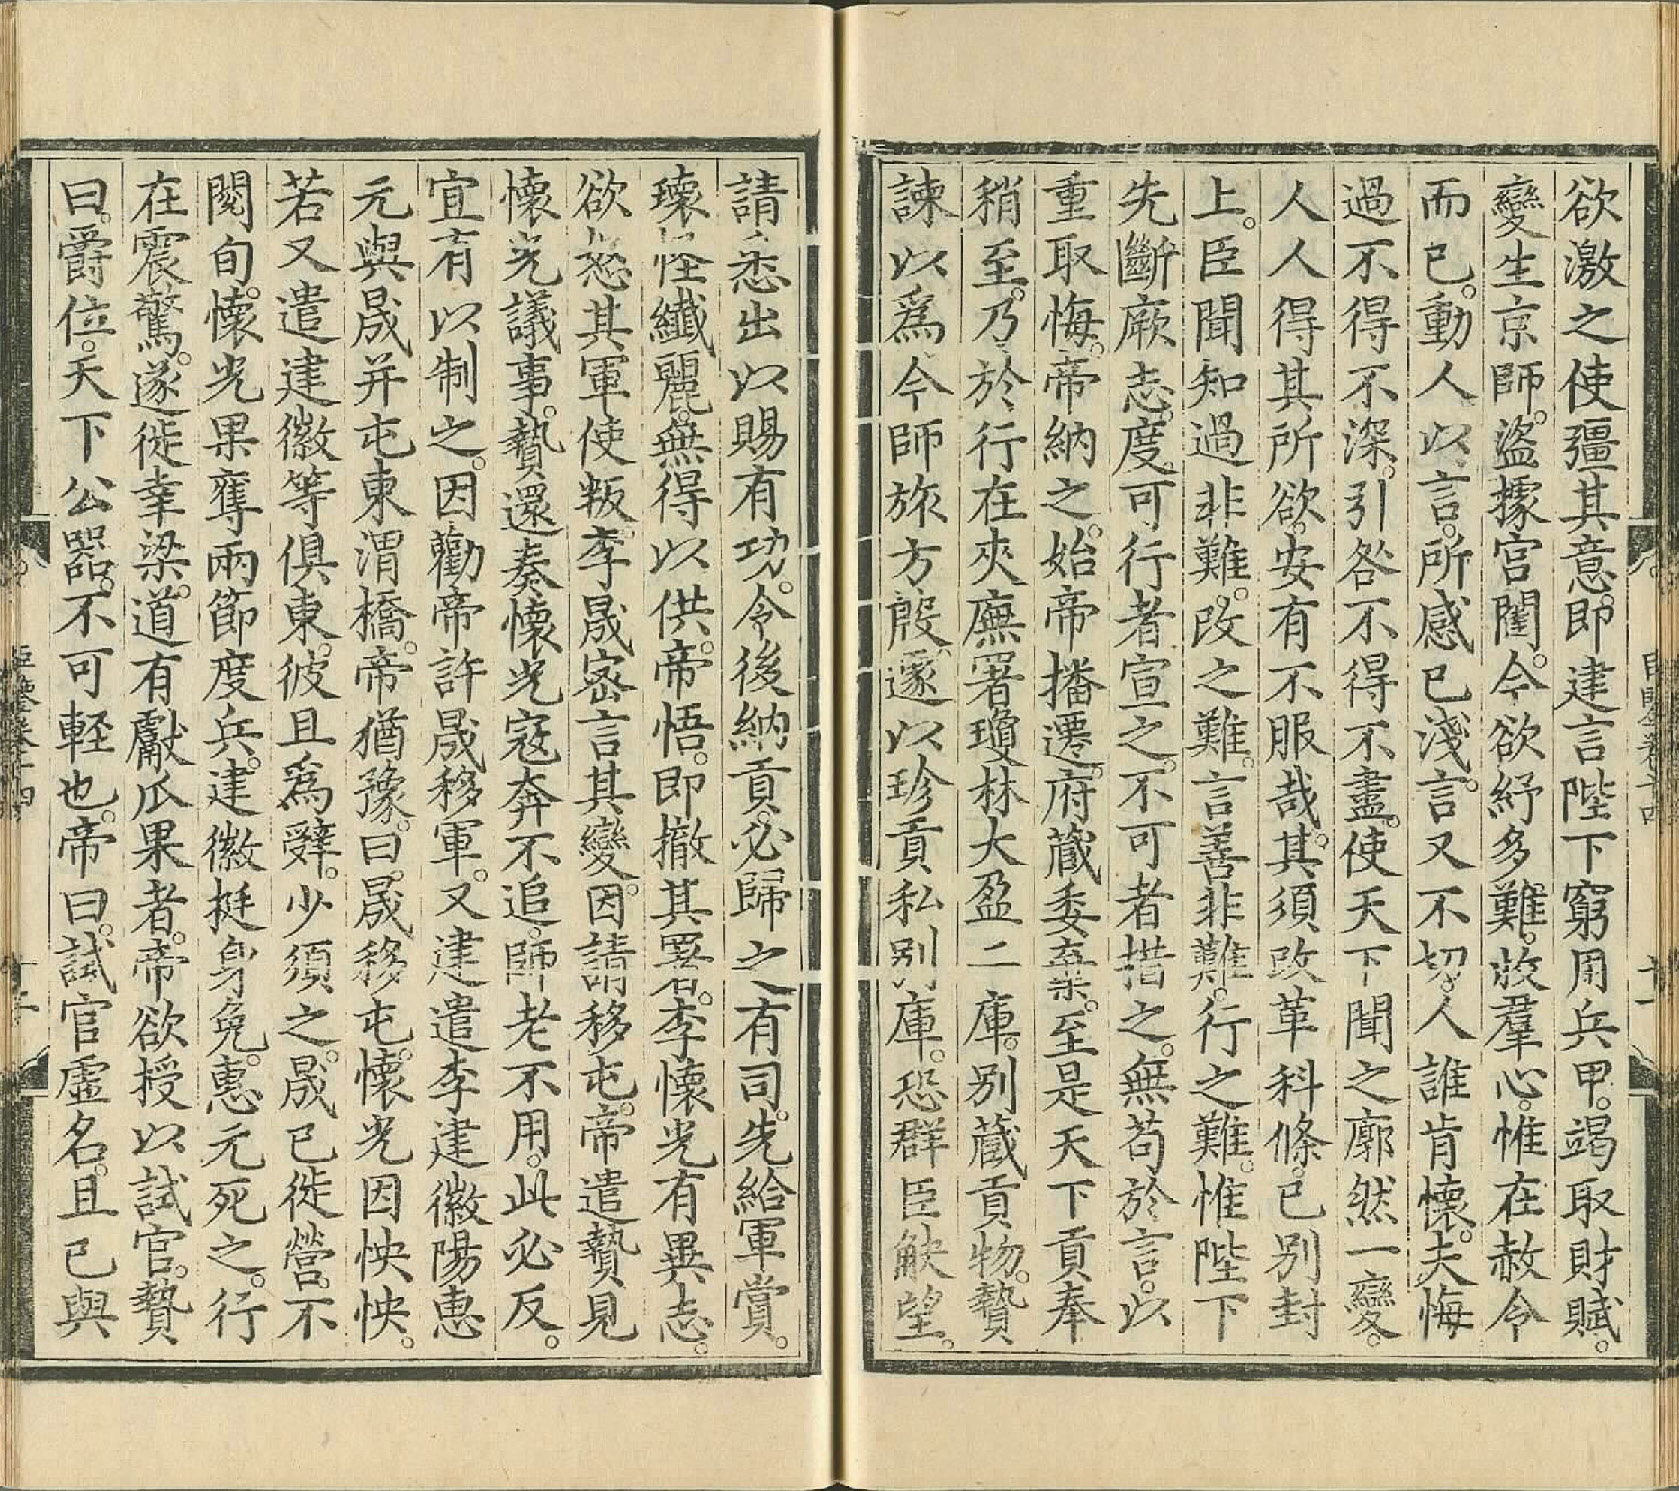 欲激之使彊其意。即建言陛下窮用兵甲。竭取財賦。
變生京師。盜據宮闈。今欲紓多難。收羣心。惟在赦令
而已。動人以言。所感已淺。言又不切。人誰肯懷。夫悔
過不得不深。引咎不得不盡。使天下聞之廓然一變。
人人得其所欲。安有不服哉。其須改革科條。已別封
上。臣聞知過非難。改之難。言善非難。行之難。惟陛下
先斷厥志。度可行者宣之。不可者措之。無苟於言。以
重取悔。帝納之。始帝播遷。府藏委棄。至是天下貢奉
稍至。乃於行在夾廡署瓊林大盈二庫。別藏貢物。贄
諫以爲今師旅方殷。遽以珍貢私別庫。恐群臣觖望。
請悉出以賜有功。令後納貢。必歸之有司。先給軍賞。
瓌怪纖麗。無得以供。帝悟。即撤其署。李懷光有異志。
欲怒其軍使叛。李晟密言其變。因請移屯。帝遣贄見
懷光議事。贄還奏懷光寇奔不追。師老不用。此必反。
宜有以制之。因勸帝許晟移軍。又建遣李建徽陽惠
元與晟并屯東渭橋。帝猶豫。曰。晟移屯。懷光因怏怏。
若又遣建徽等俱東。彼且爲辭。少須之。晟已徙營。不
閱旬。懷光果奪兩節度兵。建徽挺身免。惠元死之。行
在震驚。遂徙幸梁。道有獻瓜果者。帝欲授以試官。贄
曰。爵位。天下公器。不可輕也。帝曰。試官虛名。且已與